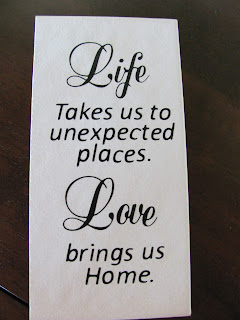 Life
Takes us to
unexpected
places.
Love
brings us
Home.